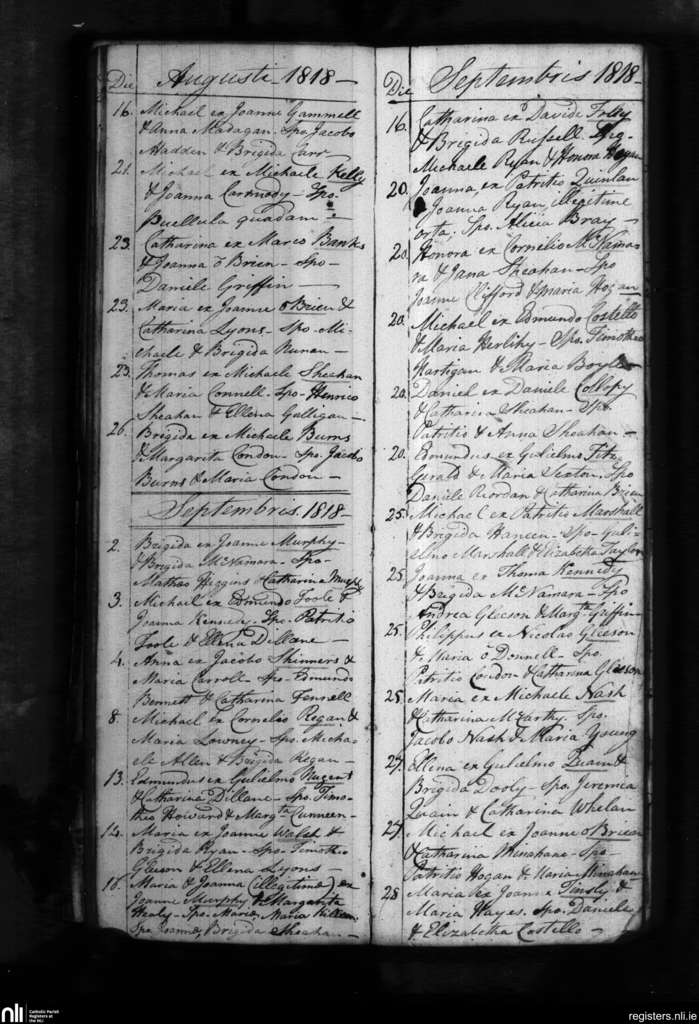 Die Augusti - 1818 -
16. Michael ex Joanne Gammell
& Anna Madagan. Spo. Jacobo
Madden & Brigida Carr -
21. Michael ex Michaele Kelly
& Joanna Carmody - Spo.
Puellula quadam
23. Catharina ex Marco Banks
& Joanna o Brien - Spo -
Daniele Griffin -
23. Maria ex Joanne o Brien &
Catharina Lyons - Spo - Mi-
chaele & Brigida Nunan -
23. Thomas ex Michaele Sheahan
& Maria Connell - Spo - Henrico
Sheahan & Ellena Galligan -
26. Brigida ex Michaele Burns
& Margarita Condon - Spo. Jacobo
Burns & Maria Condon -
Septembris. 1818 -
2. Brigida ex Joanne Murphy -
& Brigida McNamara - Spo -
Matheo Higgins & Catharina
3. Michael ex Edmundo Toole &
Joanna - Spo - Patritio
Toole & Ellena Dillane -
4. Anna ex Jacobo Skinners &
Maria Carroll - Spo - Edmundo
Bennett & Catharina Fennell
8. Michael ex Cornelio Regan &
Maria Lowney - Spo. Micha
ele Allen & Brigida Regan -
13. Edmundus ex Gulielmo Nugent
& Catharina Dillane - Spo. Timo-
theo Howard & Margta. Cunneen -
14. Maria ex Joanne Walsh &
Brigida Ryan - Spo - Timotheo
Gleeson & Ellena Lyons -
16. Maria & Joanna (illegitima) ex
Joanne Murphy & Margarita
Healy - Spo. Mariæ, Maria
Spo Joannæ, Brigida Sheahan -
Die Septembris 1818 -
16. Catharina ex Davide
& Brigida Russell. Spo.
Michaele Ryan & Honora Hogan
20. Joanna ex Patritio Quinlan
& Joanna Ryan, illegitime
orta, Spo. Alicia Bray -
20. Honora ex Cornelio McNamar-
ra & Jana Sheahan - Spo
Joanne Clifford & Maria Hogan
20. Michael ex Edmundo Costello
& Maria Herlihy - Spo. Timotheo
Hartigan & Maria Boyle -
20. Daniel ex Daniele Collopy
& Catharina Sheahan - Spo
Patritio & Anna Sheahan -
20. Edmundus ex Gulielmo Fitz-
Gerald & Maria Sexton - Spo
Daniele Riordan & Catharina Brien
25. Michael ex Patritio Marshall
& Brigida Haneen - Spo - Guli-
elmo Marshall & Elizabetha Taylor
25. Joanna ex Thoma Kennedy
& Brigida McNamara - Spo
Andrea Gleeson & Margta. Griffin -
25. Philippus ex Nicolao Gleeson
& Maria o Donnell - Spo.
Patritio Condon & Catharina Gleeson
25. Maria ex Michaele Nash
& Catharina McCarthy. Spo.
Jacobo Nash & Maria Young
27. Ellena ex Gulielmo Quain &
Brigida Dooly - Spo. Jeremia
Quain & Catharina Whelan
27. Michael ex Joanne o Brien
& Catharina Minahane - Spo
Patritio Hogan & Maria Minahane
28. Maria ex Joanne Tinsly &
Maria Hayes. Spo. Daniele
& Elizabetha Costello -
nli
Catholic Parish
Registers at
the NLI
registers.nli.ie